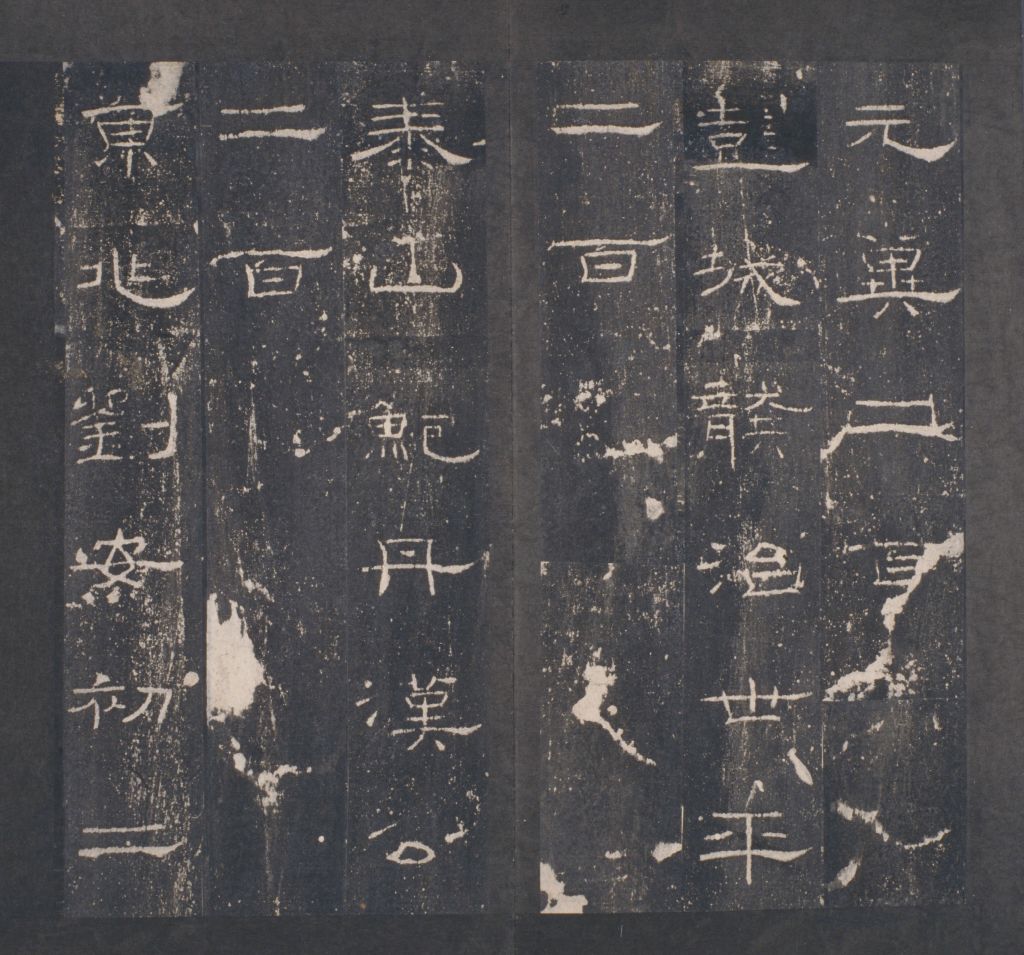 元冀二百
彭城龔治世平
二百
泰山鮑丹漢公
二百
京兆劉安初二